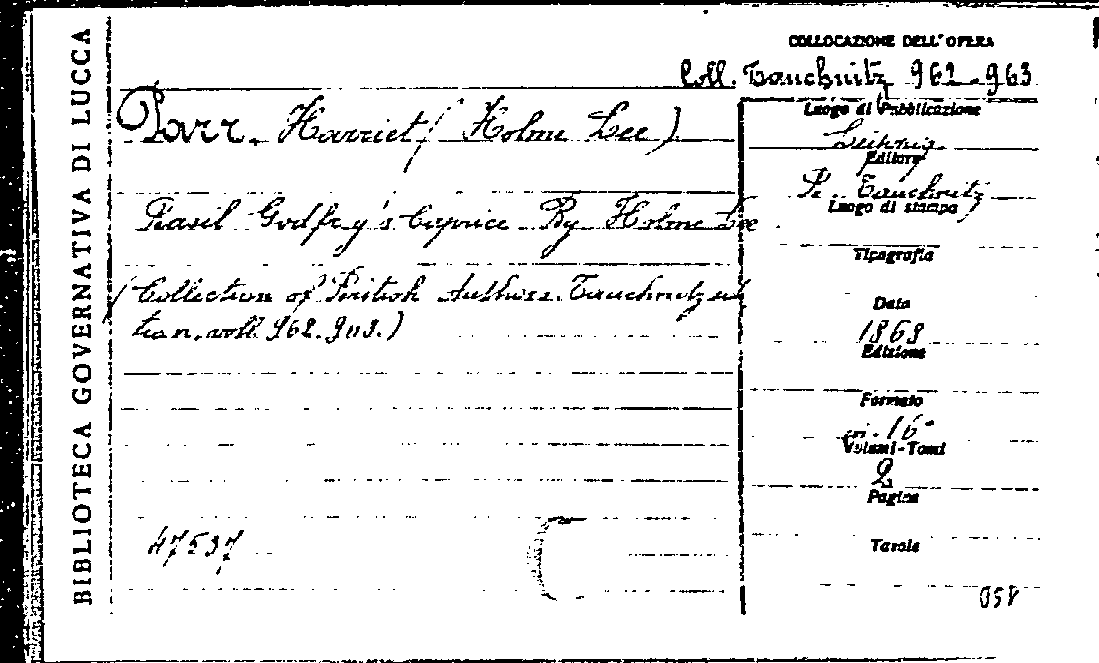 BIBLIOTECA GOVERNATIVA DI LUCCA
COLLOCAZIONE DELL'OPERA
Coll. Tauchnitz 962-963
Parr. Harriet (Holme Lee)
Basil Godfrey's Caprice. By Holme Lee.
(Collection of British Authors. Tauchnitz edi
tion, voll. 962. 963.)
47537
Luogo di Pubblicazione
Leipzig
Editore
B. Tauchnitz
Luogo di stampa
Tipografia
Data
1868
Edizione
Formato
in-16°
Volumi-Tomi
2
Pagine
Tavole